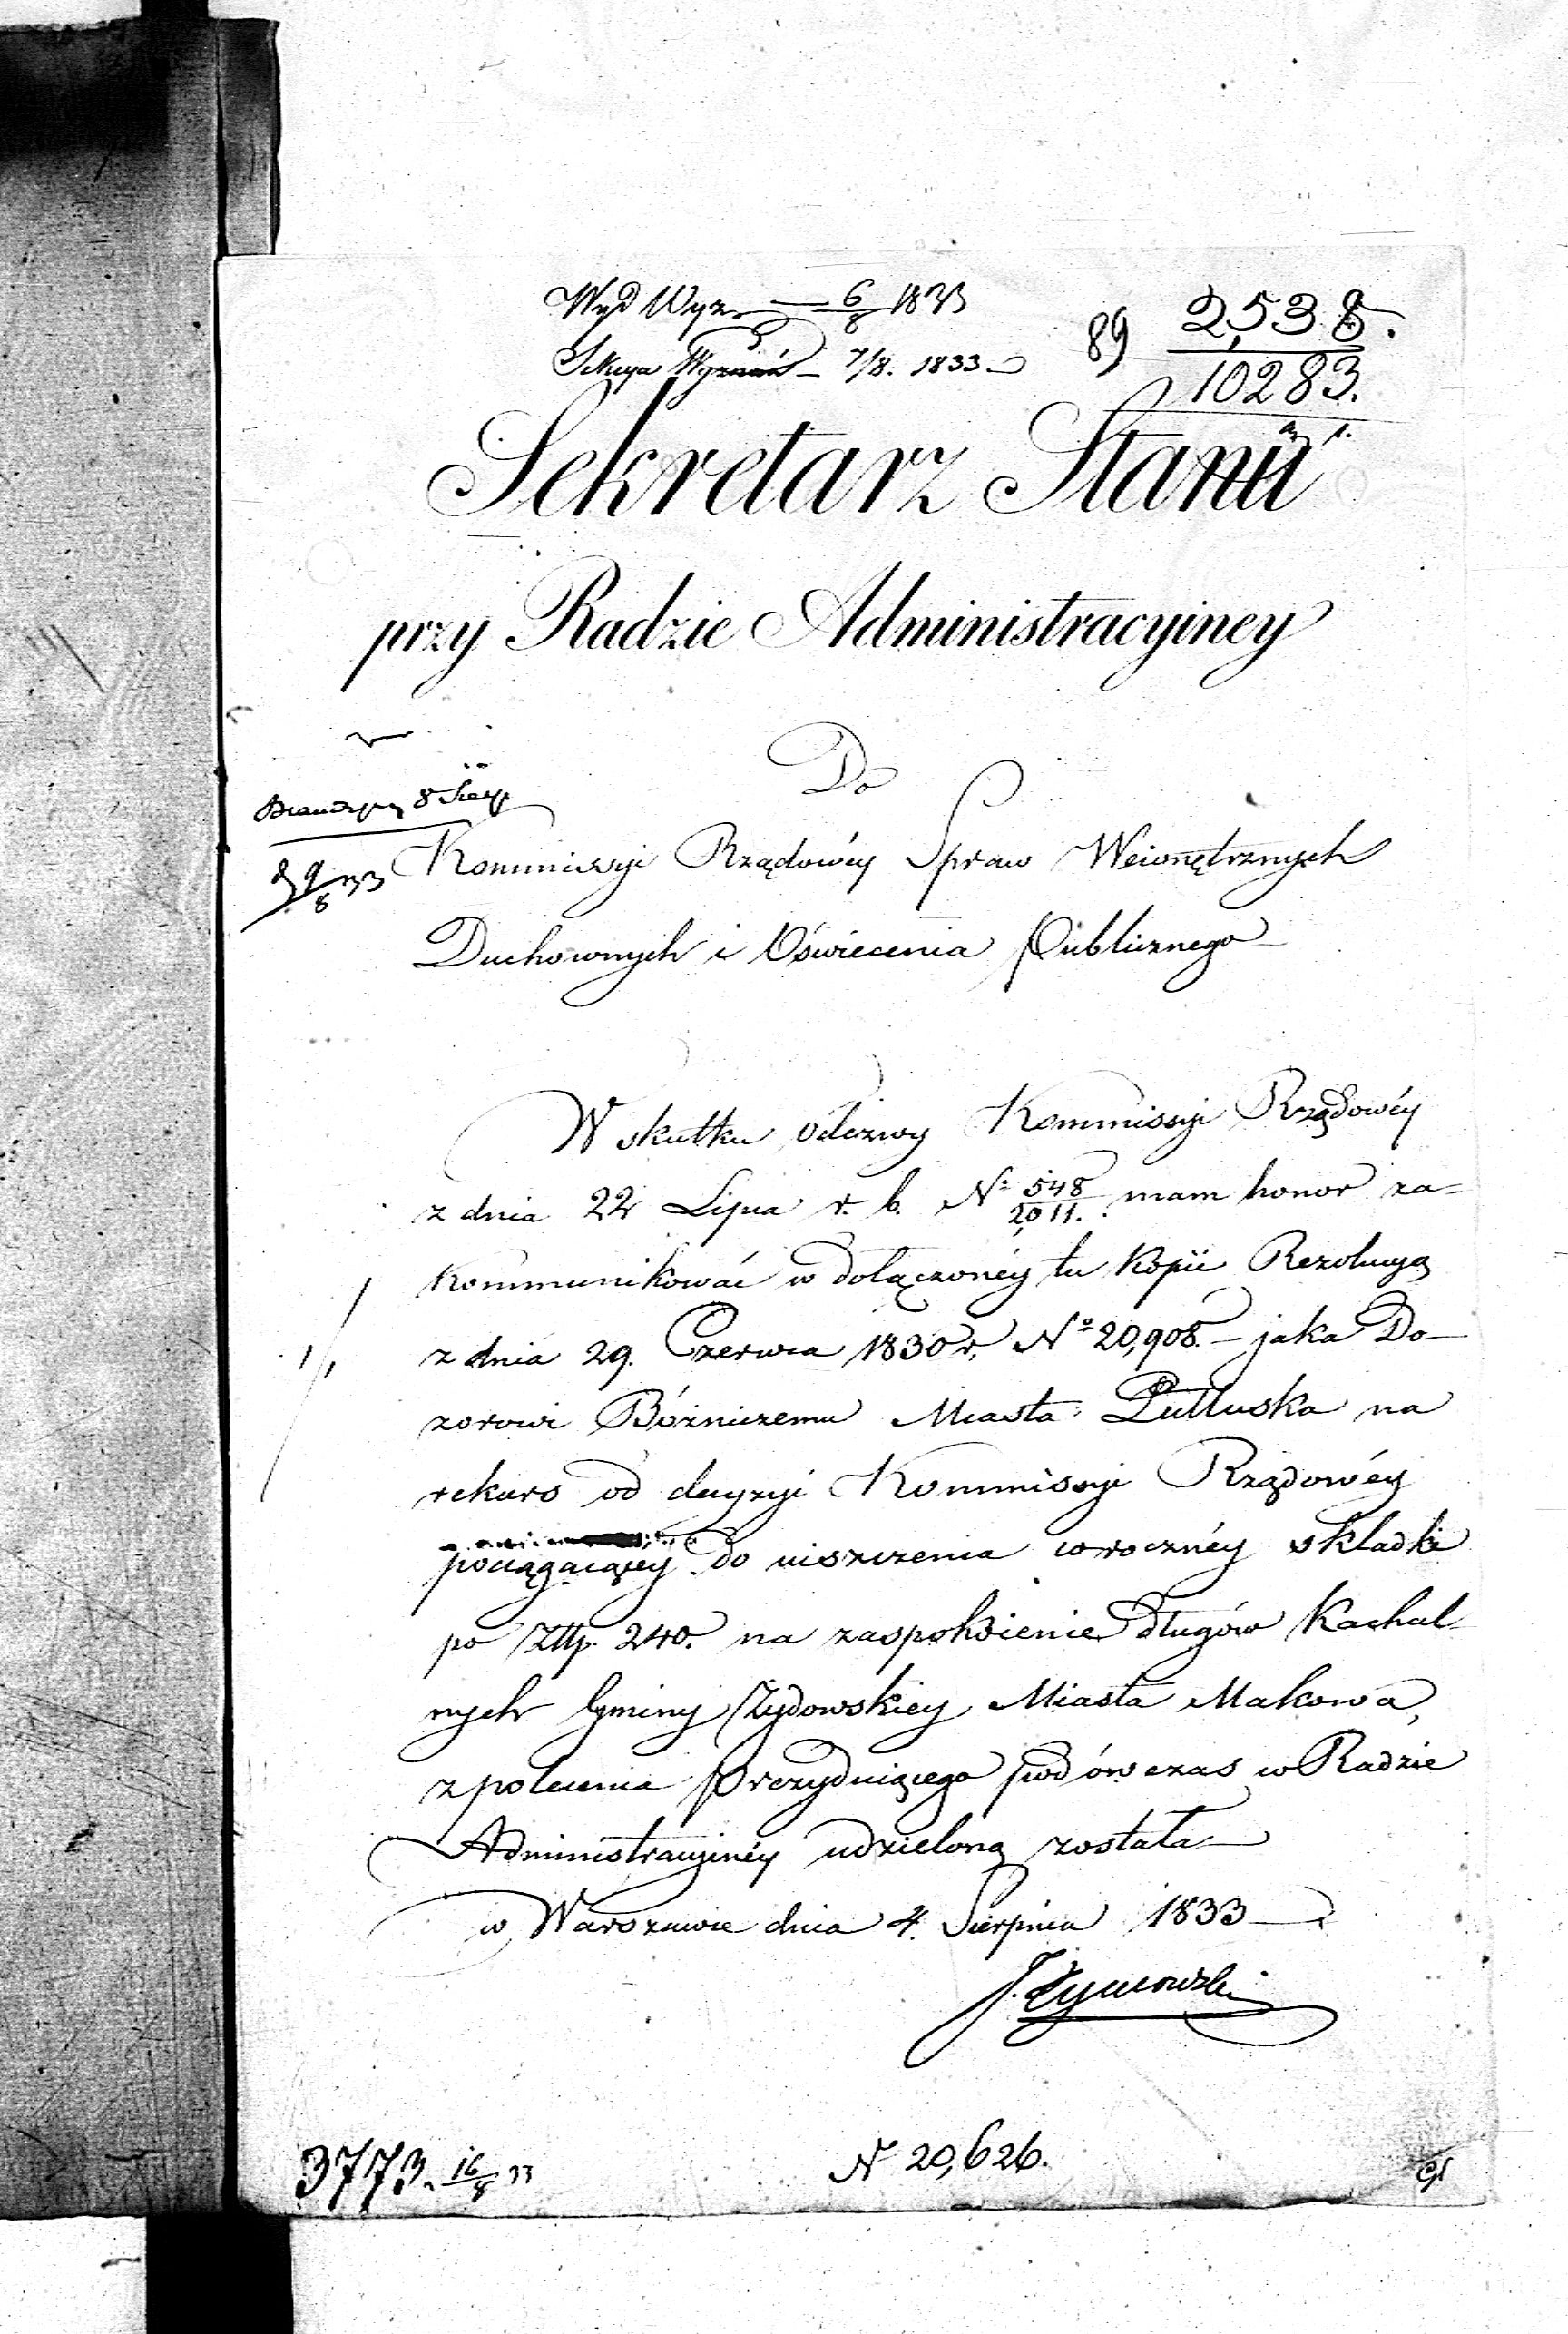 Wyd Wyz. 6/8 1833
Sekcya Wyznań – 7/8. 1833
89
2,538.
10283.
Sekretarz Stanu
przy Radzie Administracyiney
Do
8 Sierp
9/8 33
Kommissyi Rządowéy Spraw Wewnętrznych
Duchownych i Oświecenia Publicznego
W skutku odezwy Kommissyi Rządowéy
z dnia 22 Lipca r. b. Nº 548/2,011. mam honor za=
kommunikować w dołączonéy tu kopii Rezolucyą
z dnia 29. Czerwca 1830 r. Nº 20,908. – jaka Do-
zorowi Bóżniczemu Miasta Pułtuska na
rekurs od decyzyi Kommissyi Rządowéy
pociągaiącéy do uiszczenia coroczney składki
po Złtp. 240. na zaspokoienie długów Kachal-
nych Gminy Żydowskiey Miasta Makowa,
z polecenia Prezyduiącego podówczas w Radzie
Administracyinéy udzieloną została
w Warszawie dnia 4. Sierpnia 1833
J. Tymowski
3773. 16/8 33
N 20,626.